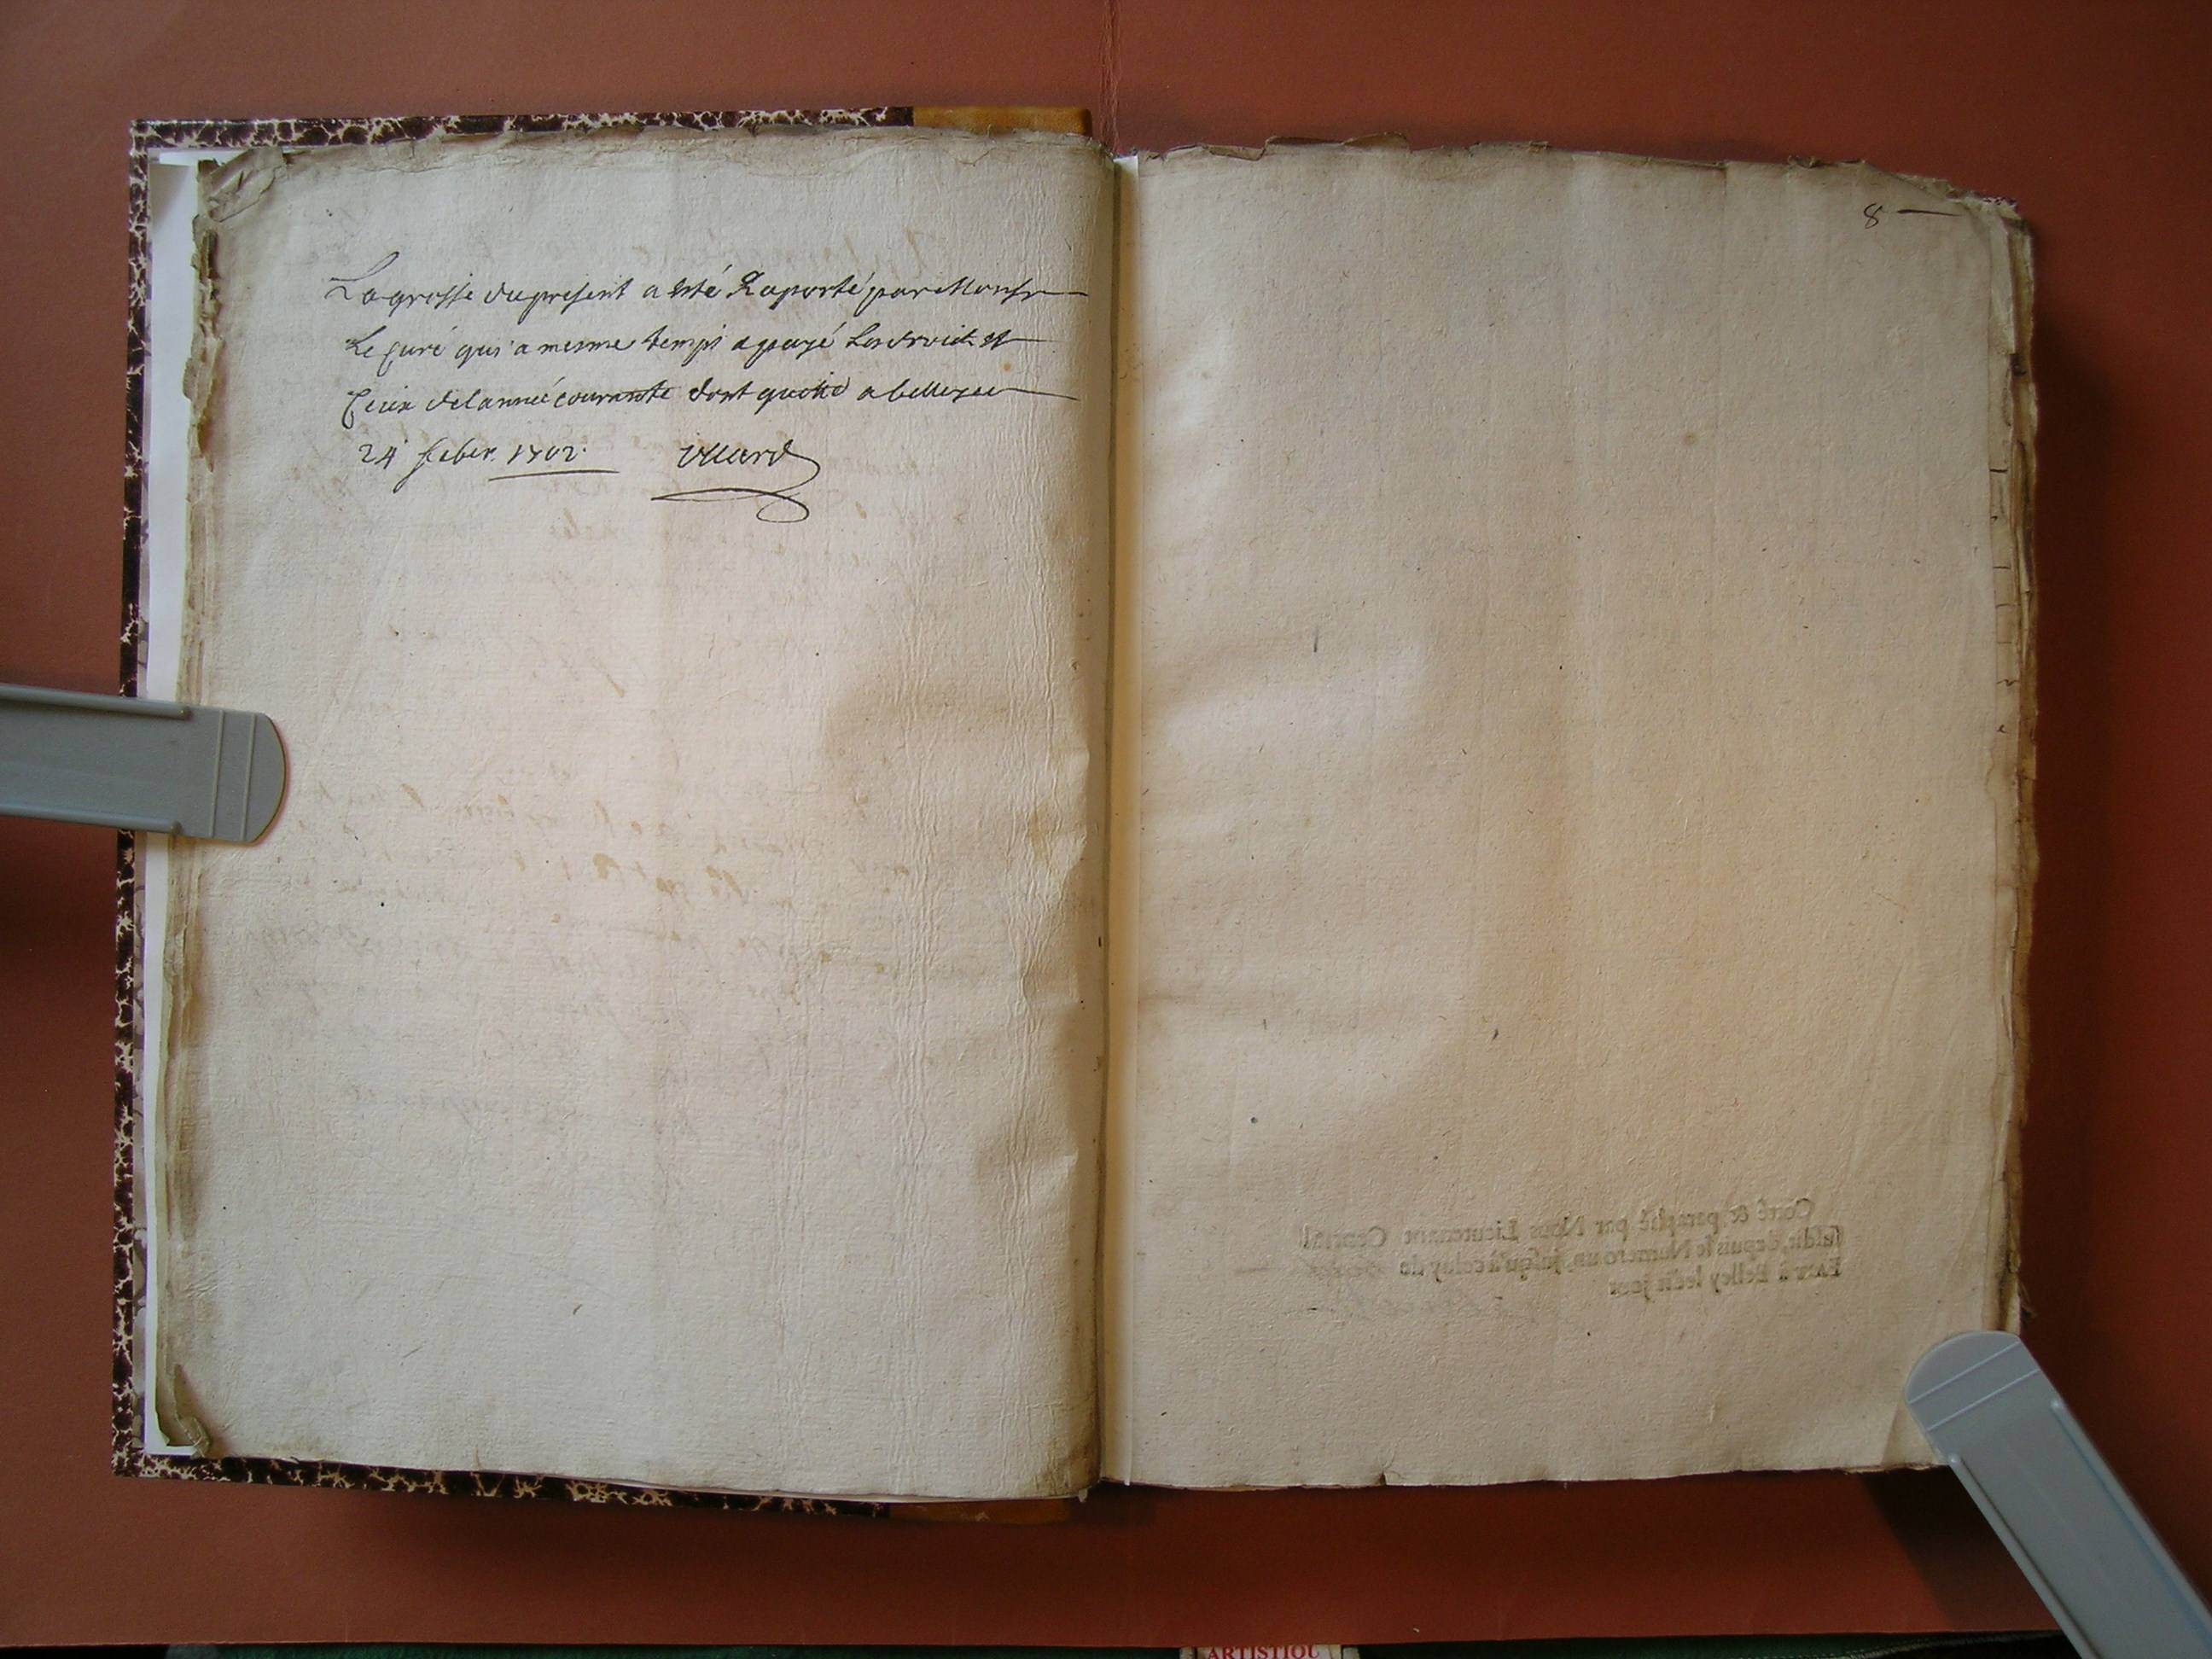 La grosse du present a esté Raporté par Monsr
Le Curé qui a mesme temps a payé Les droict et
Ceux de l'année courante dont quitte a belley ce
24 feber. 1702. Villard
8
Cotté & paraphé par Nous Lieutenant General
susdit, depuis le Numero un, jusqu'à celuy de
FAIT à Belley ledit jour
ARTISTIQU